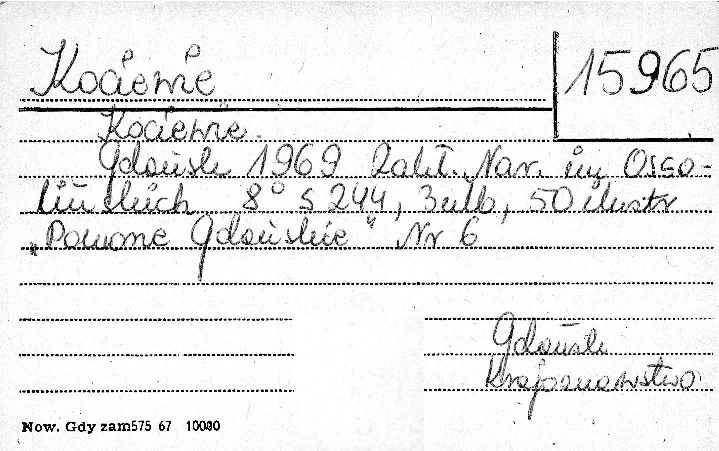 Kociewie
15965
Kociewie.
Gdańsk 1969 Zakł. Nar. im Osso-
lińskich 8° s 244, 3nlb, 50 ilustr
„Pomorze Gdańskie” Nr 6
Gdańsk
Krajoznawstwo
Now. Gdy zam575 67 10000